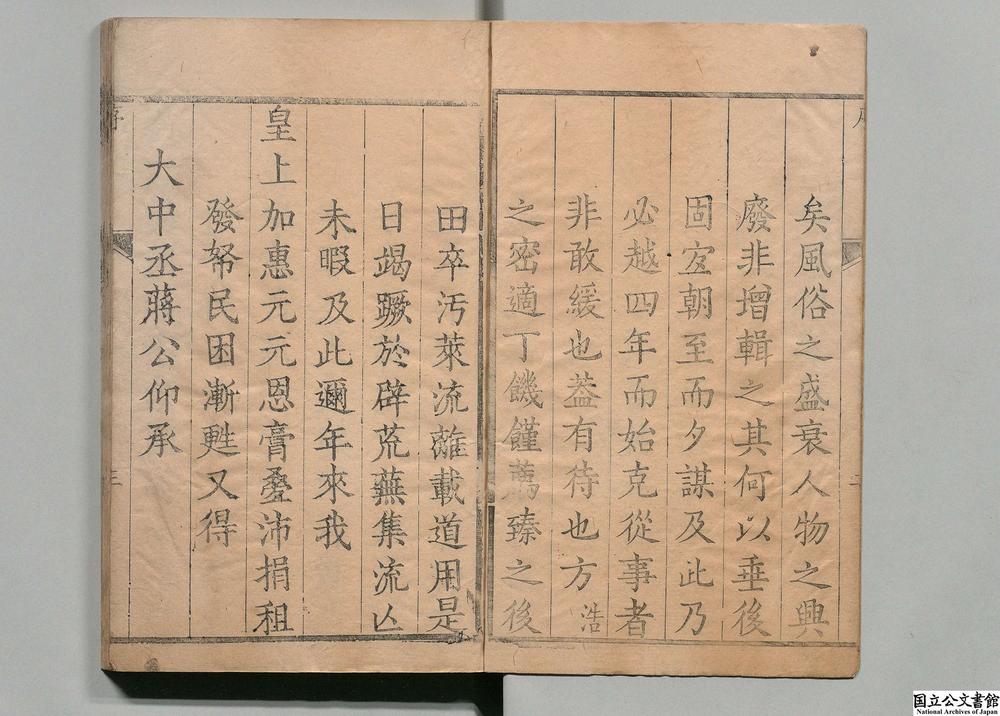 矣風俗之盛衰人物之興
廢非增輯之其何以垂後
固宐朝至而夕謀及此乃
必越四年而始克從事者
非敢緩也葢有待也方浩
之密適丁饑饉荐臻之後
田卒汚萊流離載道用是
日竭蹶於辟荒蕪集流亾
未暇及此邇年來我
皇上加惠元元恩膏疊沛捐租
發帑民困漸甦又得
大中丞蔣公仰承
序
三
国立公文書館
National Archives of Japan